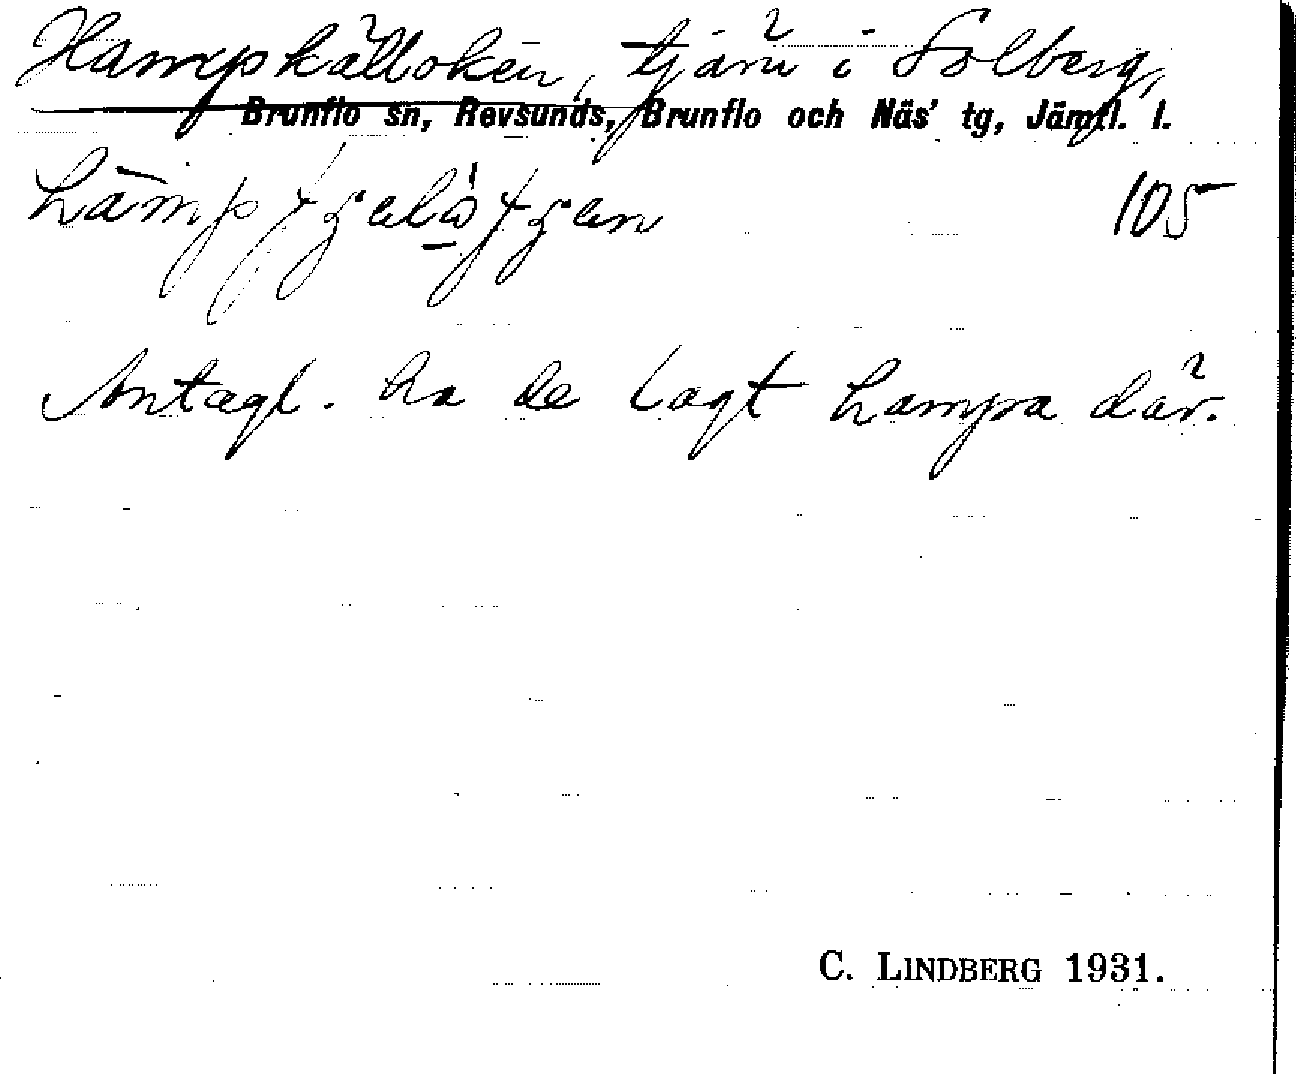 Hampkälloken, tjärn i Solberg,
Brunflo sn, Revsunds, Brunflo och Näs' tg, Jämtl. l.
105
Antagl. ha de lagt hampa där.
C. LINDBERG 1931.